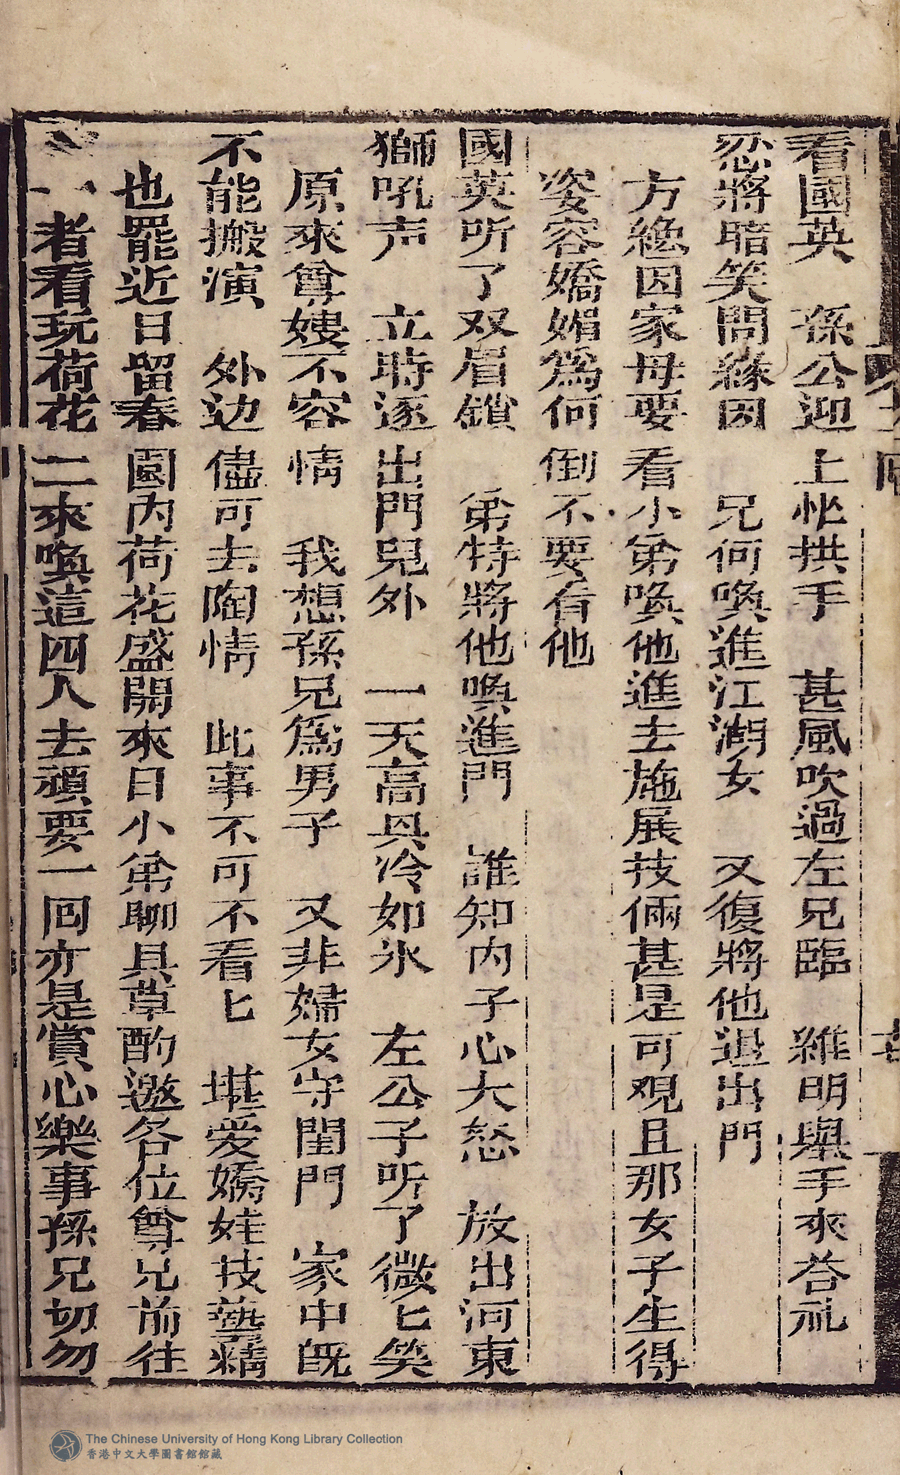 看國英　孫公迎上忙拱手　甚風吹過左兄臨　維明舉手來荅礼
忍將暗笑問緣因　兄何喚進江湖女　又復將他退出門
方纔因家母要看小弟喚他進去施展技倆甚是可观且那女子生得
姿容嬌媚爲何倒不要看他
國英听了双眉鎖　弟特將他喚進門　誰知内子心大怒　放出河東
獅吼声　立時逐出門兒外　一天高具冷如氷　左公子听了微匕笑
原來尊嫂不容情　我想孫兄爲男子　又非婦女守閨門　家中旣
不能搬演　外边儘可去陶情　此事不可不看匕　堪愛嬌娃技藝精
也罷近日留春園内荷花盛開來日小弟聊具草酌邀各位尊兄前往
一者看玩荷花二來喚這四人去頑耍一回亦是賞心樂事孫兄切勿
The Chinese University of Hong Kong Library Collection
香港中文大學圖書館館藏